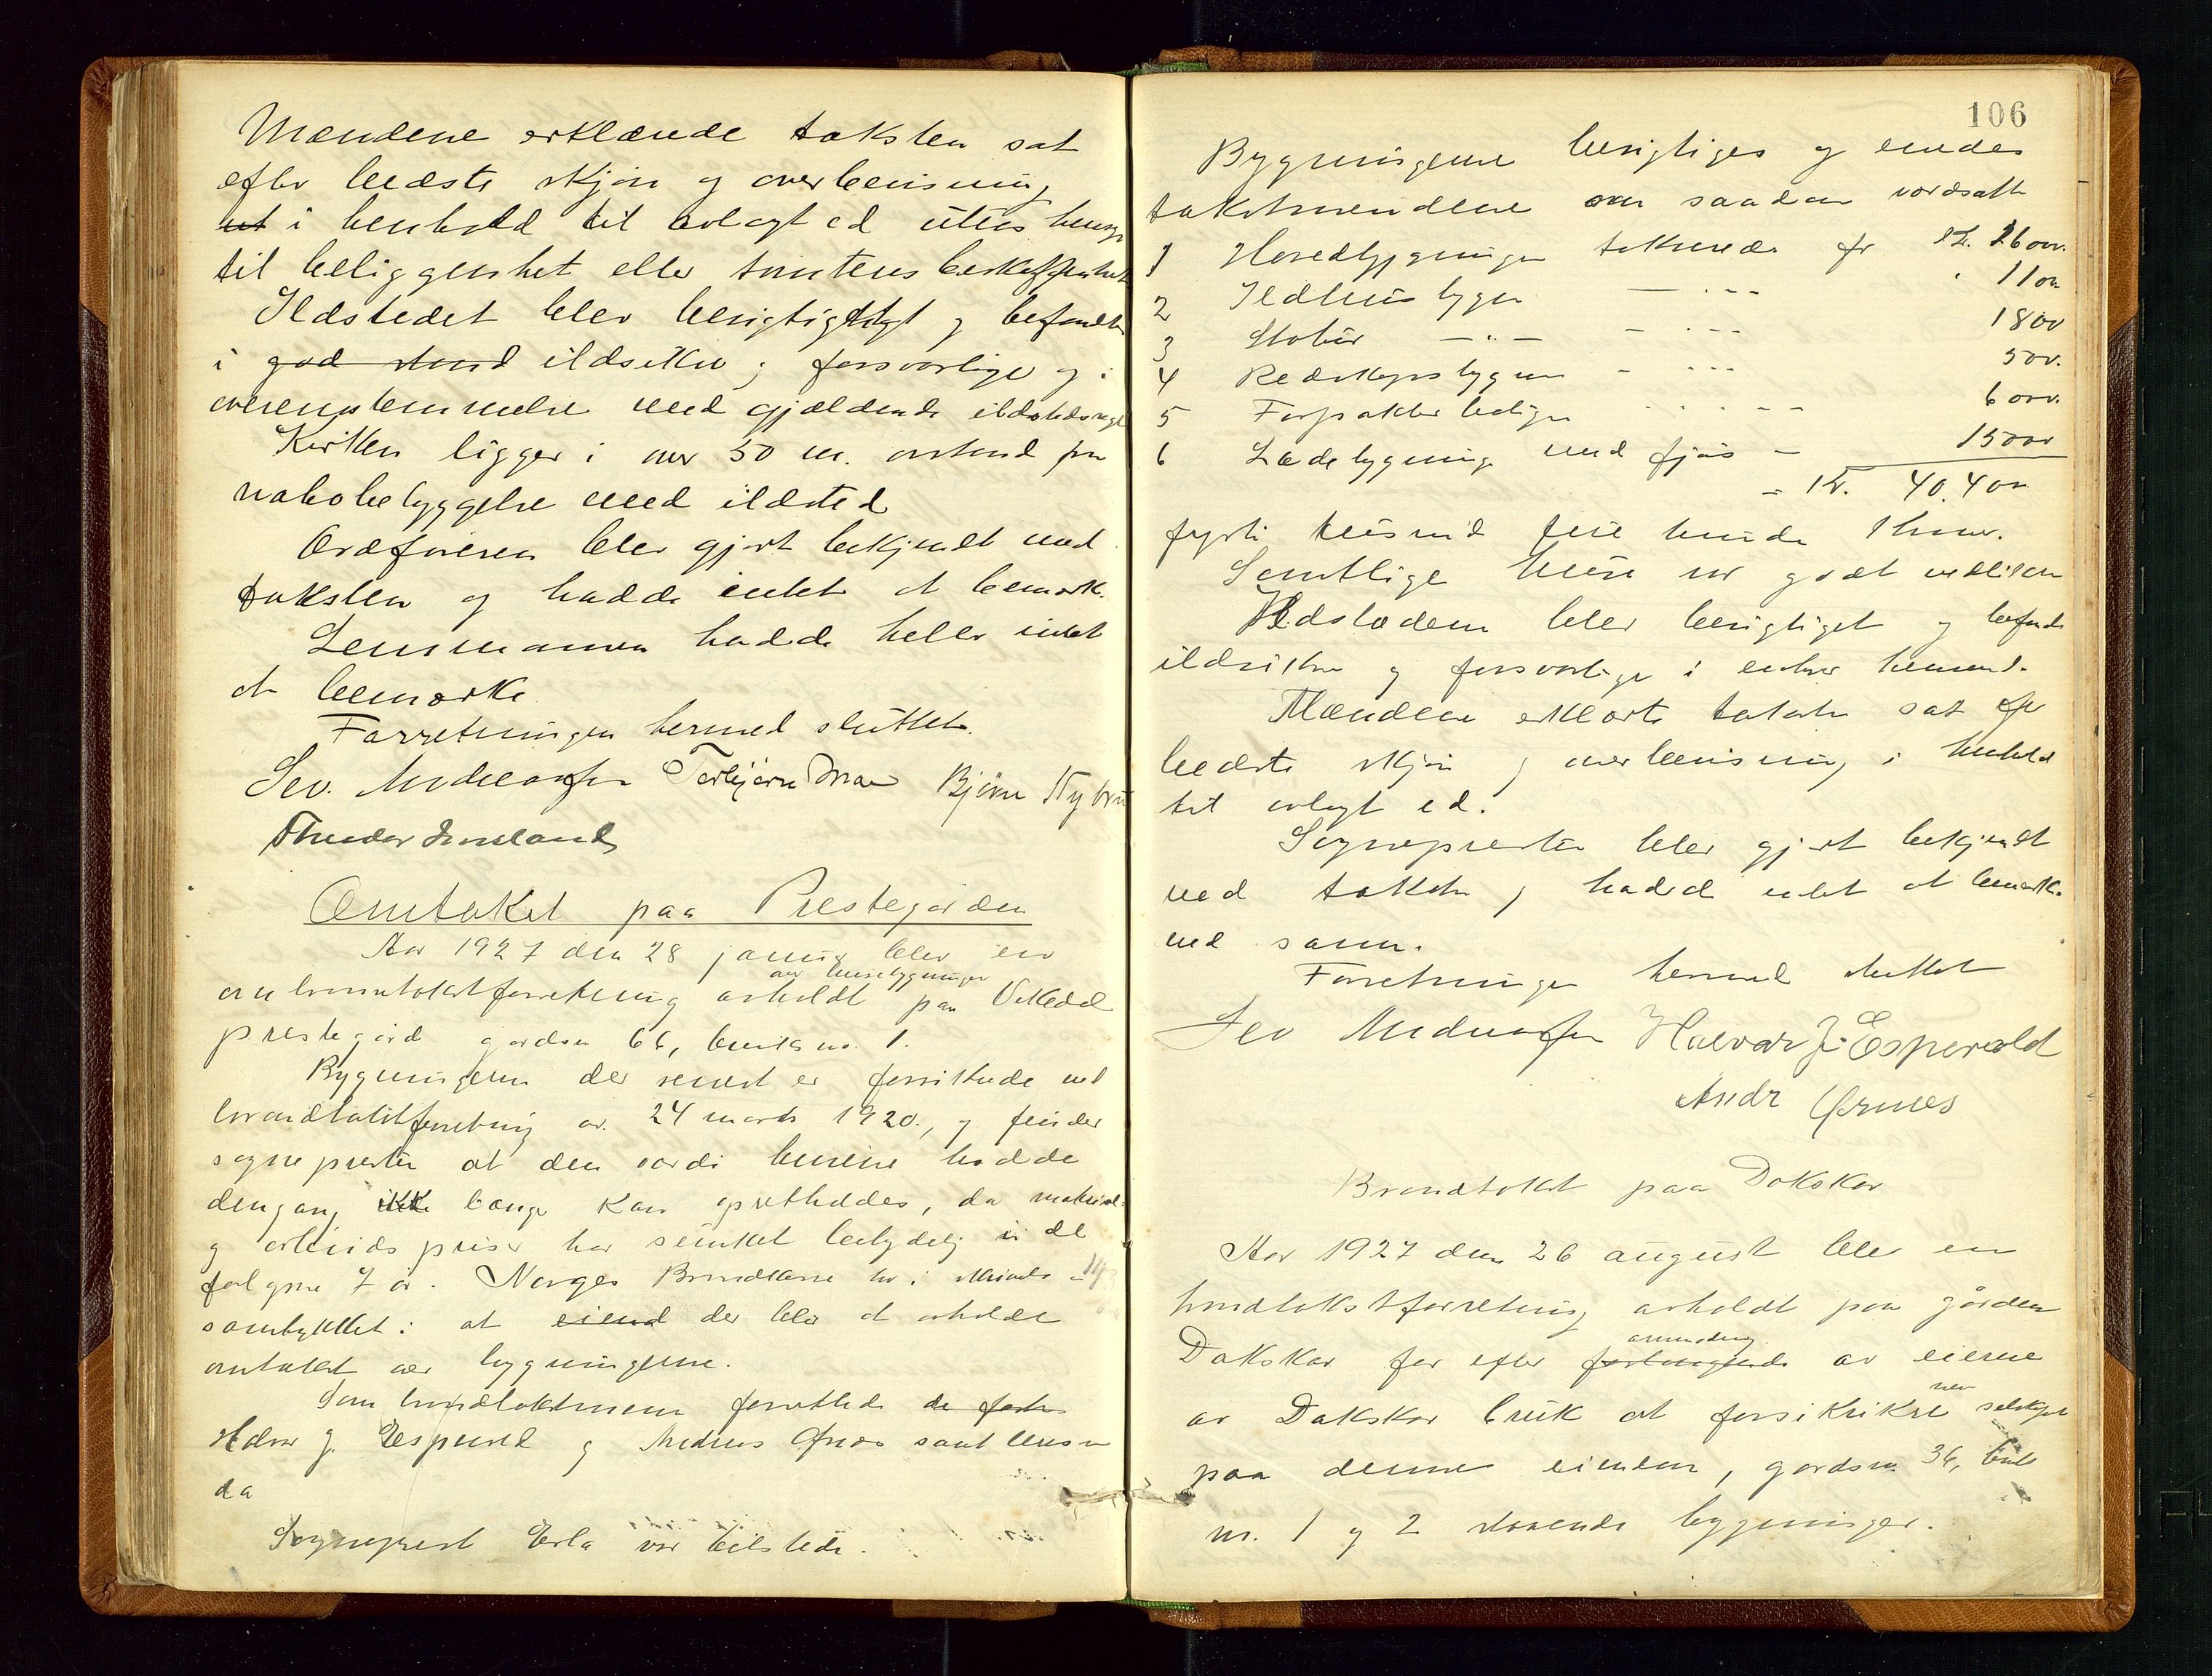 Mændene erklærede taksten sat
efter bedste skjøn og overbevisning
ut i henhold til avlagt ed uten hensyn
til beliggenhet eller tomtens beskaffenhet
Ildstedet blev besigtigtigt og befandtes
i god stand ildsikre og forsvarlige og i
overensstemmelse med gjældende ildstedsregl
Kirken ligger i over 50 m. avstand fra
nabobebyggelse med ildsted
Ordføreren blev gjort bekjendt med
taksten og hadde intet at bemerk.
Lensmannen hadde heller intet
at bemerke
Forretningen hermed sluttet.
Sev. Andreassen Torbjørn Bjørn Nybru
Theodor
Omtakst paa Prestegården
Aar 1927 den 28 januar blev en
over husebygninger
ombrandtakstforretning avholdt paa Vikedal
prestegård gardsn 66, bruksno. 1.
Bygningerne der senest er forsikrede ved
brandtakstforretning av 24 marts 1920., og finder
sogneprester at den værdi husene hadde
dengang ikke længe kan opretholdes, da material-
og arbeidspriser har sunket betydelig i de
følgene 7 år. Norges Brandkasse har i skrivelse
samtykket i at eiend der blev at avholde
omtakst over bygningerne.
Som brandtakstmenn forrettede de faste
Halvor J. Espevold og Andreas Ørnes samt lensm
da
Sogneprest Erla var tilstede.
106
Bygningerne besigtiges og endes
takstmendene om saadan værdsatte
1 Hovedbygningen takserede for kr. 16000.
2 Ildhusbygn — . -- " 1100
3 Stabur — " — - . -- 1800
4 Redskapsbygnin - . -- 500.
5 Forpakterboligen . . . -- 6000.
6 Ladebygning med fjøs - 15000
= Kr. 40.400
fyrti tusend fire hundre kroner.
Samtlige huse er godt vedlikeh
Ildstedene blev besigtiget og befunde
ildsikre og forsvarlige i enhver henseend.
Mændene erklærte taksten sat efter
bedste skjøn og overbevisning i henhold
til avlagt ed.
Sognepresten blev gjort bekjendt
med taksten og hadde intet at bemerke
ved samme.
Forretningen hermed sluttet
Sev Andreassen Halvor J. Espevold
Andr Ørnes
Brandtakst paa Dokskar
Aar 1927 den 26 august blev en
brandtakstforretning avholdt paa gården
anmodning
Dakskar for efter forlangende av eierne
av Dakskar bruk at forsikrikre selskapet
paa denne eiendom, gardsn 36, bruk
nr. 1 og 2 staaende bygninger.